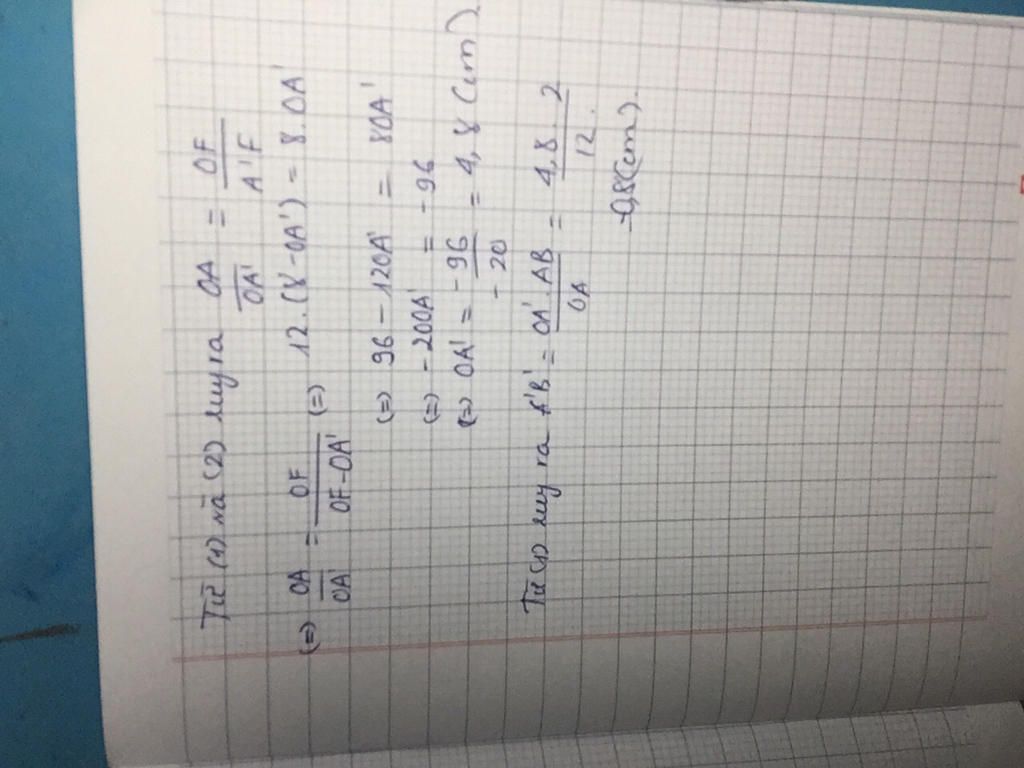 Từ (1) và (2) suy ra OA/OA' = OF/A'F
(=) OA/OA' = OF/OF-OA' (=) 12.(8-OA') = 8.OA'
(=) 96 - 12OA' = 8OA'
(=) -20OA' = -96
(=) OA' = -96/-20 = 4,8 (cm)
Từ (1) suy ra A'B' = OA'.AB/OA = 4,8.2/12.
-0,8(cm).